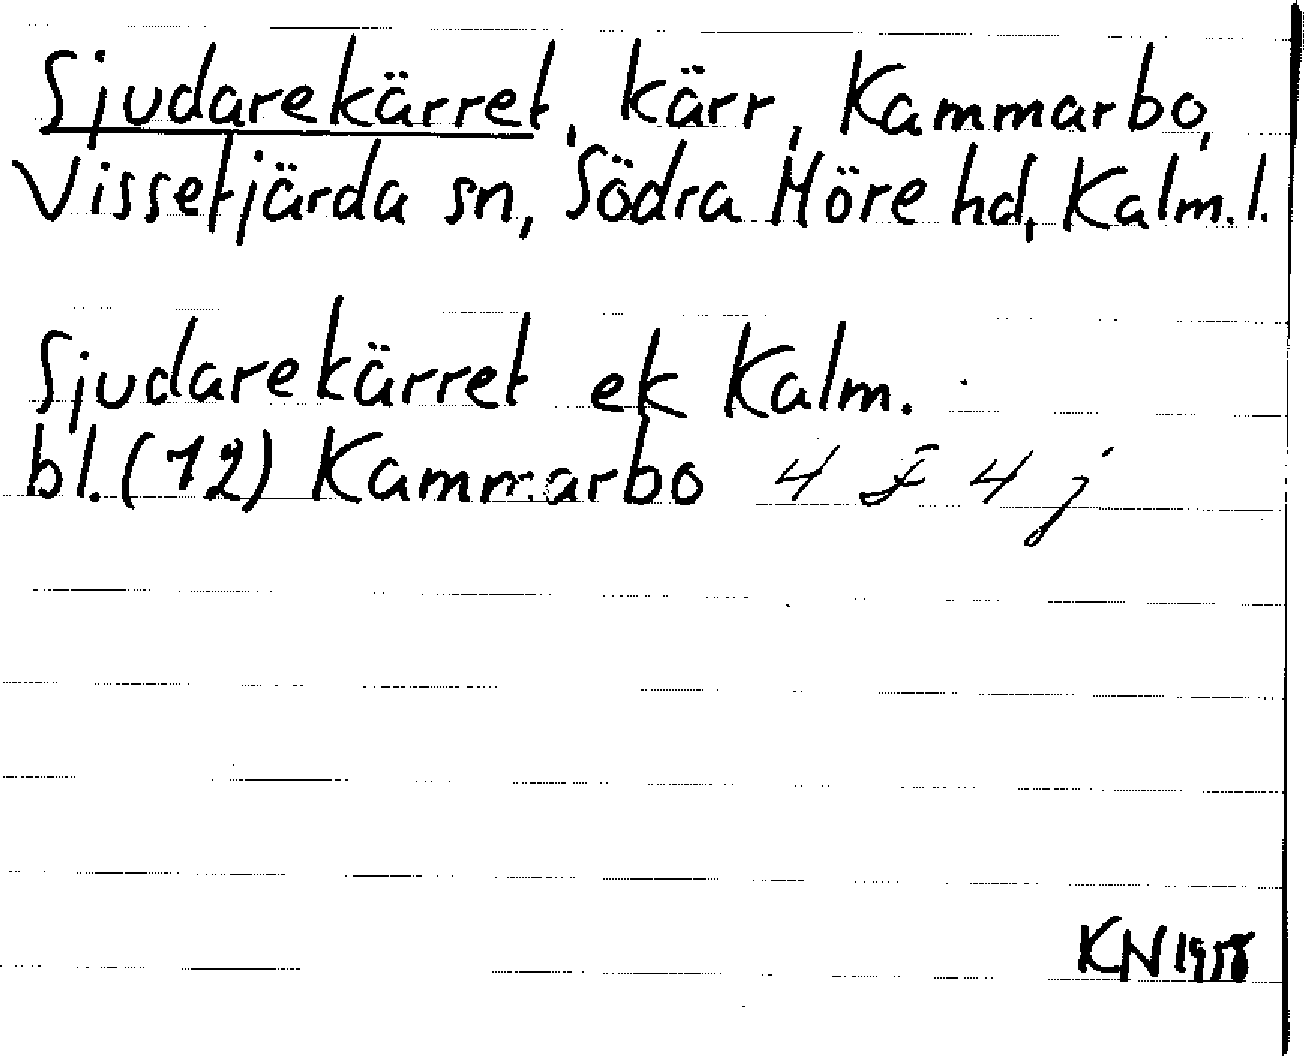 Sjudarekärret, kärr, Kammarbo,
Vissefjärda sn, Södra Möre hd, Kalm. l.
Sjudarekärret ek Kalm.
bl. (12) Kammarbo 4 F 4 j
KN 1958